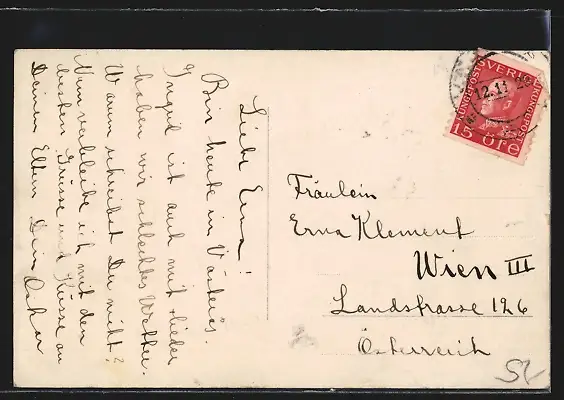 Liebe Erna!
Bin heute in Västerås.
Ingrid ist auch mit + leider
haben wir schlechtes Wetter.
Warum schreibst Du nicht?
Nun verbleibe ich mit den
besten Grüsse und Küsse an
Deinen Eltern Dein Oskar
SVERIGE
KUNGL POST
KUNGL POST
15 ÖRE
12.11.
Fräulein
Erna Klement
Wien III
Landstrasse 126
Österreich